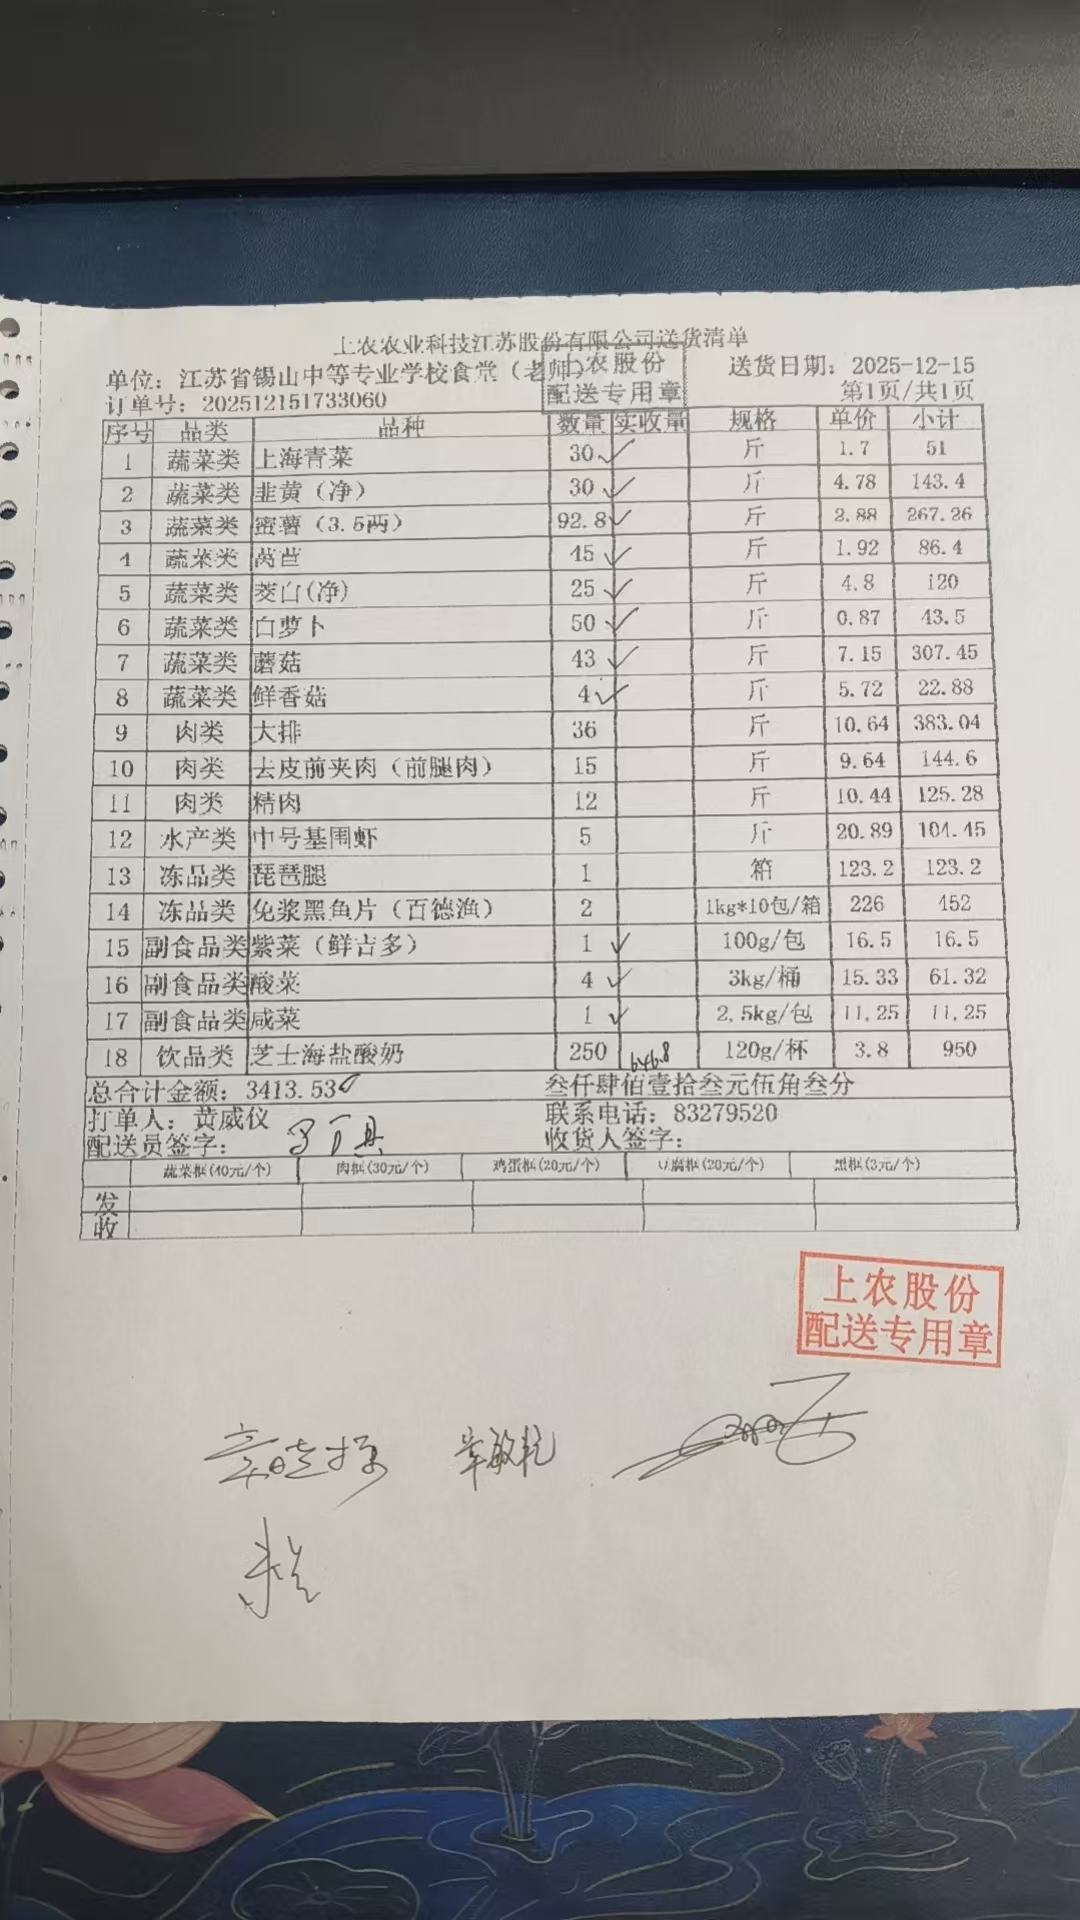 上农农业科技江苏股份有限公司送货清单
单位：江苏省锡山中等专业学校食堂（老师） 送货日期：2025-12-15
上农股份
配送专用章
订单号：202512151733060 第1页/共1页
序号 品类 品种 数量 实收量 规格 单价 小计
1 蔬菜类 上海青菜 30 ✓ 斤 1.7 51
2 蔬菜类 韭黄（净） 30 ✓ 斤 4.78 143.4
3 蔬菜类 蜜薯（3.5两） 92.8 ✓ 斤 2.88 267.26
4 蔬菜类 莴苣 45 ✓ 斤 1.92 86.4
5 蔬菜类 茭白(净) 25 ✓ 斤 4.8 120
6 蔬菜类 白萝卜 50 ✓ 斤 0.87 43.5
7 蔬菜类 蘑菇 43 ✓ 斤 7.15 307.45
8 蔬菜类 鲜香菇 4 ✓ 斤 5.72 22.88
9 肉类 大排 36 斤 10.64 383.04
10 肉类 去皮前夹肉（前腿肉） 15 斤 9.64 144.6
11 肉类 精肉 12 斤 10.44 125.28
12 水产类 中号基围虾 5 斤 20.89 104.45
13 冻品类 琵琶腿 1 箱 123.2 123.2
14 冻品类 免浆黑鱼片（百德渔） 2 1kg*10包/箱 226 452
15 副食品类 紫菜（鲜吉多） 1 ✓ 100g/包 16.5 16.5
16 副食品类 酸菜 4 ✓ 3kg/桶 15.33 61.32
17 副食品类 咸菜 1 ✓ 2.5kg/包 11.25 11.25
18 饮品类 芝士海盐酸奶 250 646.8 120g/杯 3.8 950
总合计金额：3413.53 叁仟肆佰壹拾叁元伍角叁分
打单人：黄威仪 联系电话：83279520
配送员签字： 收货人签字：
蔬菜框(40元/个) 肉框(30元/个) 鸡蛋框(20元/个) 豆腐框(20元/个) 黑框(3元/个)
发
收
上农股份
配送专用章